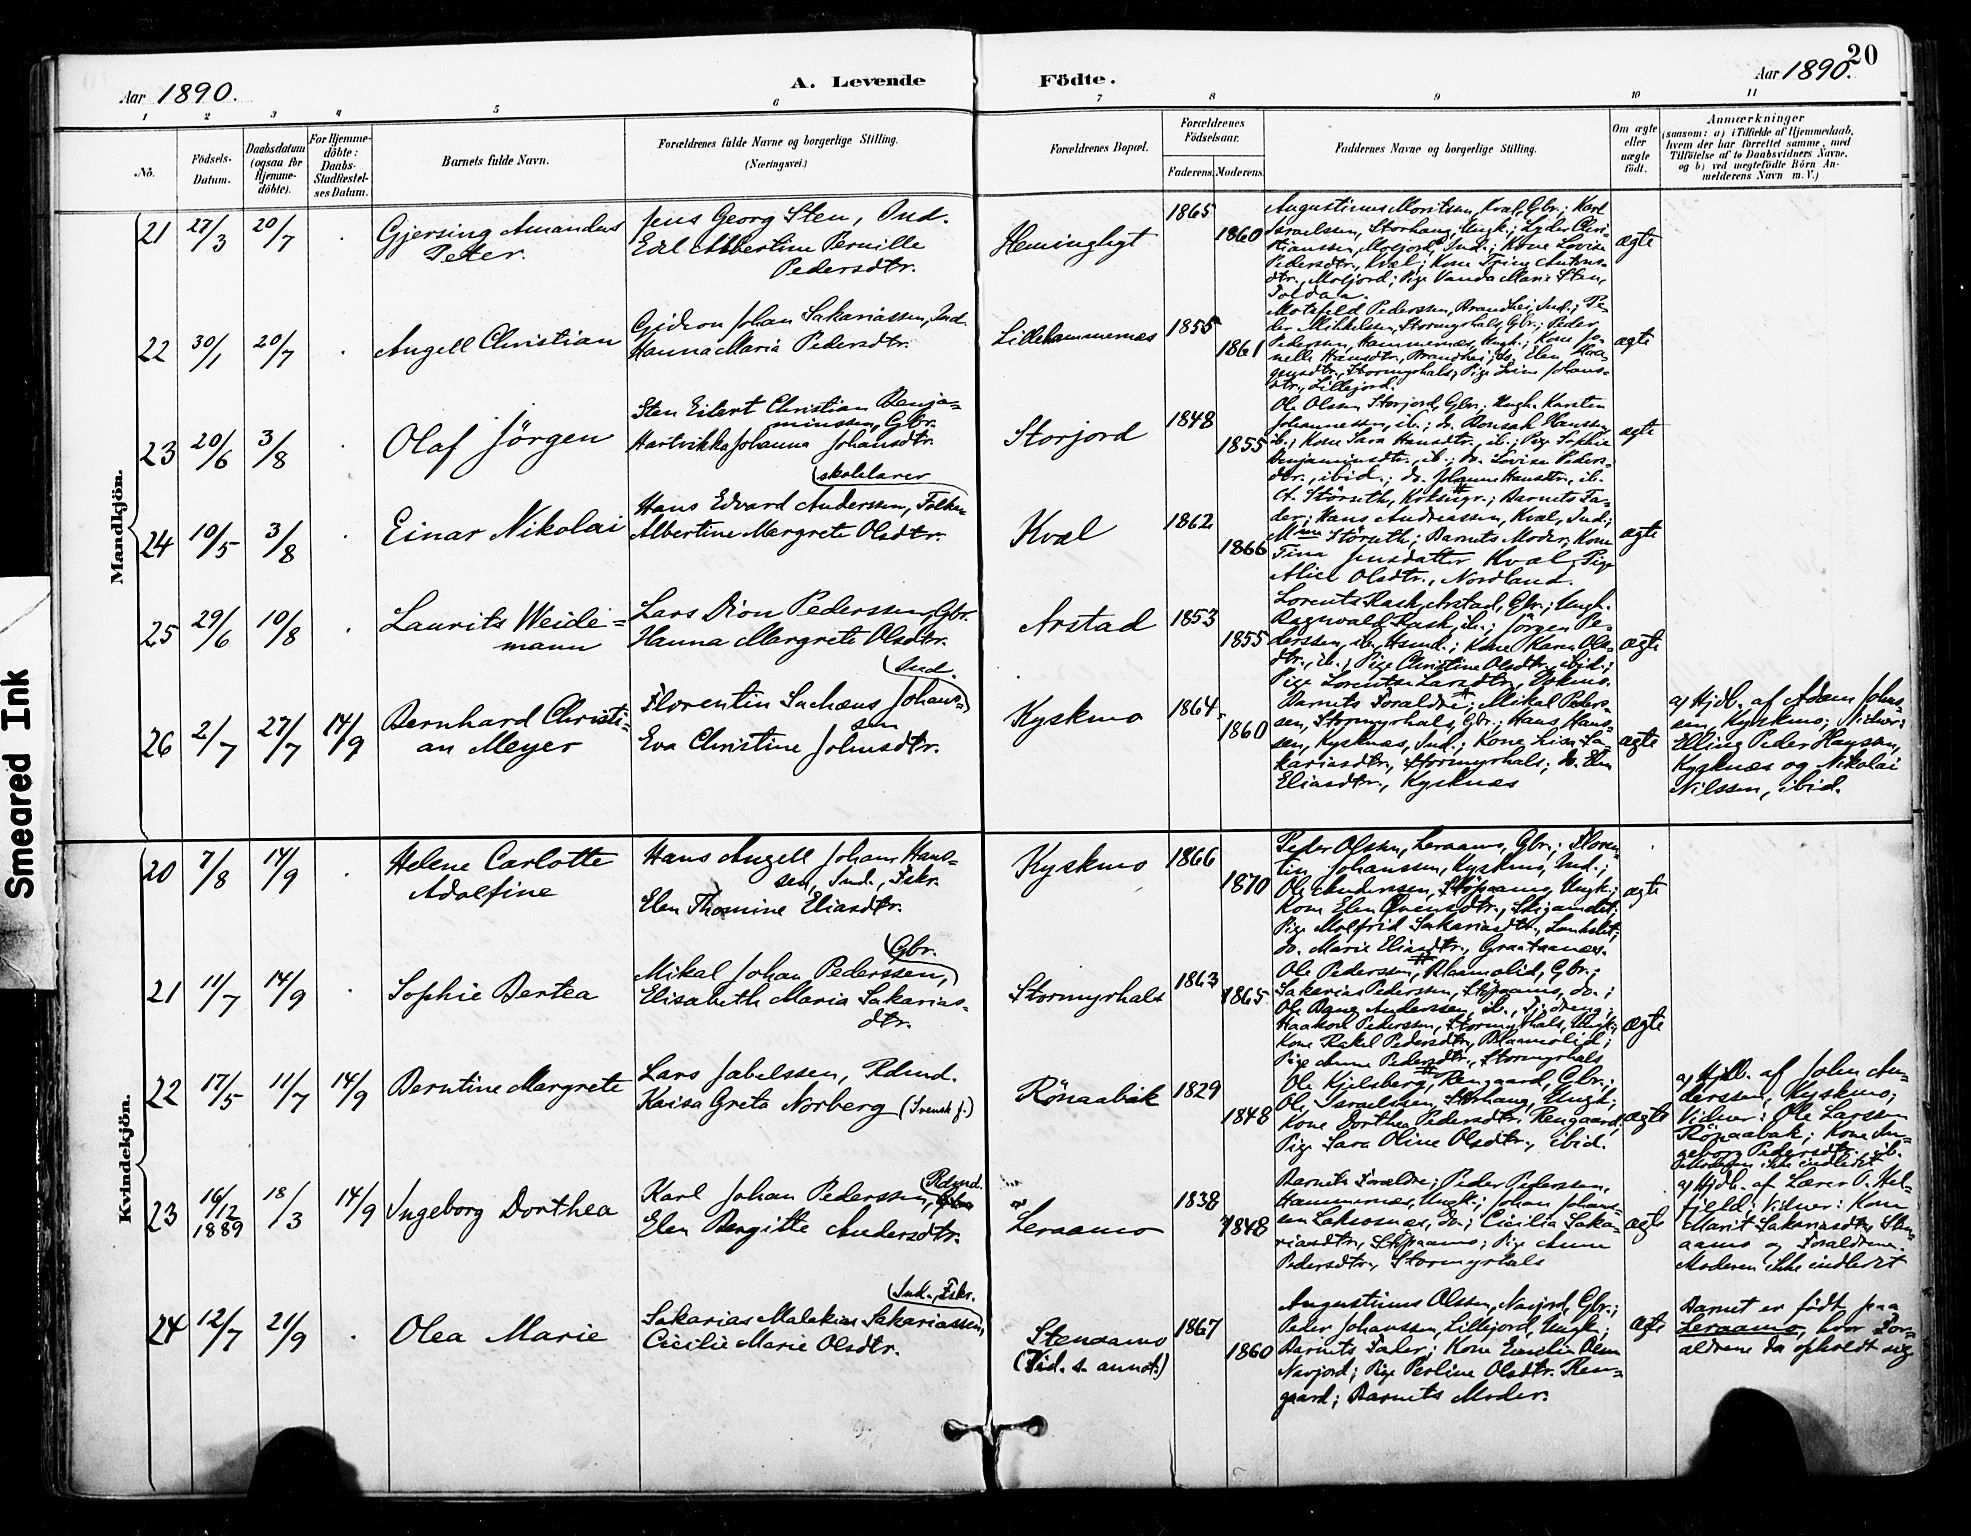 20
Aar 1890.
A. Levende Födte.
Aar 1890.
1 2 3 4 5 6 7 8 9 10 11
No.
Födsels-Datum.
Daabsdatum (ogsaa for Hjemme-döbte).
For Hjemme-döbte: Daabs-Stadfæstel-ses Datum.
Barnets fulde Navn.
Forældrenes fulde Navne og borgerlige Stilling.
(Næringsvei.)
Forældrenes Bopæl.
Forældrenes Födselsaar.
Faderens. Moderens.
Faddernes Navne og borgerlige Stilling.
Om ægte eller uægte födt.
Anmærkninger
(saasom: a) i Tilfælde af Hjemmedaab,
hvem der har forrettet samme, med
Tilföielse af to Daabsvidners Navne,
og b) ved uægtefödte Börn An-
melderens Navn m. V.)
Mandkjön.
21 27/3 20/7 . Gjersing Amandus
Peter.
Jens Georg Sten, Ind.
Edl Albertine Pernille
Pedersdtr.
Hemingligt
1865
1860
Augustinus Moritsen, Kval, Gbr.; Karl
Israelssen, Storhaug, Ungk.; Lyder Chri-
stianssen, Moljord, Ind.; Kone Lovise
Pedersdtr., Kval; Kone Trine Antons-
dtr., Moljord; Pige Vanda Marie Sten,
Toldaa.
ægte
22 30/1 20/7 . Angell Christian
Gideon Johan Sakariassen, Ind.
Hanna Maria Pedersdtr.
Lillehammernæs
1855
1861
Motsfeld Pederssen, Brandhei, Ind.; Pe-
der Mikkelsen, Stormyrhals, Gbr.; Peder
Pedersen, Hammernæs, Ungk.; Kone
Hansdtr., Brandhei; do. Elen
Stormyrhals, Pige Johans-
dtr., Lillejord.
ægte
23 20/6 3/8 . Olaf Jörgen
Sten Eilert Christian Benja-
minssen, Gbr.
Hartvikka Johanna Johansdtr.
Storjord
1848
1855
Ole Olssen Storjord, Gbr.; Ungk. Karsten
Johannessen, ib.; do. Hanssen
ib.; Kone Sara Hansdtr., ib.; Pige Sophie
Benjaminsdtr., ib.; do. Lovise Peders-
dtr., ibid.; do. Johanne Hansdtr., ib.
ægte
24 10/5 3/8 . Einar Nikolai
skolelærer
Hans Edvard Anderssen, Folke-
Albertine Margrete Olsdtr.
Kval
1862
1866
Störseth, Kirkesgr.; Barnets Fa-
der; Hans Andreassen, Kval, Ind.;
Störseth; Barnets Moder; Kone
Tina Jensdatter Kval, Pige
Alice Olsdtr., Nordland.
ægte
25 29/6 10/8 . Laurits Weide-
mann
Lars Dion Pederssen, Gbr.
Hanna Margrete Olsdtr.
Arstad
1853
1855
Lorents Rask, Arstad, Gbr.; Ungk.
Ragnvald Rask, ib.; Jörgen Pe-
derssen, ib., Husmd.; Kone Karen Ols-
dtr., ib.; Pige Christine Olsdtr., ibid.;
Pige Lorentse Larsdtr.,
ægte
26 2/7 27/7 14/9 Bernhard Christi-
an Meyer
Ind.
Florentin Sachæus Johans-
sen
Eva Christine Johnsdtr.
Kyskmo
1864
1860
Barnets Forældre; Mikal Peders-
sen, Stormyrhals, Gbr.; Hans Hans-
sen, Kysknæs, Ind.; Kone Lisa Sa-
kariasdtr., Stormyrhals; do. Elen
Eliasdtr., Kysknæs
ægte
a) Hjdb. af Adam Johns-
sen, Kyskmo; Vidner:
Elling Peder Hanssen,
Kysknæs og Nikolai
Nilssen, ibid.
Kvindekjön.
20 7/8 14/9 . Helene Carlotte
Adolfine
Hans Angell Johan Hans-
sen, Ind., Fskr.
Elen Thomine Eliasdtr.
Kyskmo
1866
1870
Peder Olssen, Leraamo, Gbr.; Floren-
tin Johanssen, Kyskmo, Ind.;
Ole Anderssen, Ungk.;
Kone Elen
Pige Molfrid Sakariasdtr.,
do. Marie Eliasdtr., Graataanæs.
ægte
21 11/7 14/9 . Sophie Bertea
Gbr.
Mikal Johan Pederssen,
Elisabeth Maria Sakarias-
dtr.
Stormyrhals
1863
1865
Ole Pederssen, Blaamolid, Gbr.;
Sakarias Pederssen, do.;
Ole Anderssen, ib.,
Haakon Pederssen, Stormyrhals, Ungk.;
Kone Rakel Pedersdtr., Blaamolid;
Pige Anne Pedersdtr., Stormyrhals
ægte
22 17/5 11/7 14/9 Berntine Margrete
Lars Jabelssen, Rdmd.
Kaisa Greta Norberg (Svensk f.)
Rönaabak
1829
1848
Ole Kjelsberg, Rengaard, Gbr.;
Ole Israelssen, Storhaug, Ungk.;
Kone Dorthea Pedersdtr. Rengaard,
Pige Sara Oline Olsdtr., ibid.
ægte
a) Hjdb. af John An-
derssen, Kyskmo;
Vidner: Ole Larssen
Rönaabak; Kone An-
geborg Pedersdtr., ib.
Moderen ikke indledet
23 16/12 1889 18/3 14/9 Ingeborg Dorthea
Rdmd.
Karl Johan Pederssen,
Elen Bergitte Andersdtr.
Leraamo
1838
1848
Barnets Forældre; Peder Pederssen,
Hammernæs, Ungk.; Johan Johans-
sen Laksosnæs, do.; Cicilia Saka-
riasdtr., Pige Anne
Pedersdtr., Stormyrhals
ægte
a) Hjdb. af Lærer P. Hel-
fjeld; Vidner: Kone
Marit Sakariasdtr. Sten-
aamo og Forældrene.
Moderen ikke indledet
24 12/7 21/9 . Olea Marie
Ind., Fskr.
Sakarias Malakias Sakariassen,
Cicilie Marie Olsdtr.
Stenaamo
(Vid. s. annot.)
1867
1860
Augustinus Olssen, Navjord, Gbr.;
Peder Johanssen, Lillejord, Ungk.;
Barnets Fader; Kone Emilie Olsen
Navjord; Pige Perline Olsdtr. Ren-
gaard; Barnets Moder.
ægte
Barnet er födt paa
Leraamo, hvor For-
ældrene da opholdt sig
Smeared Ink